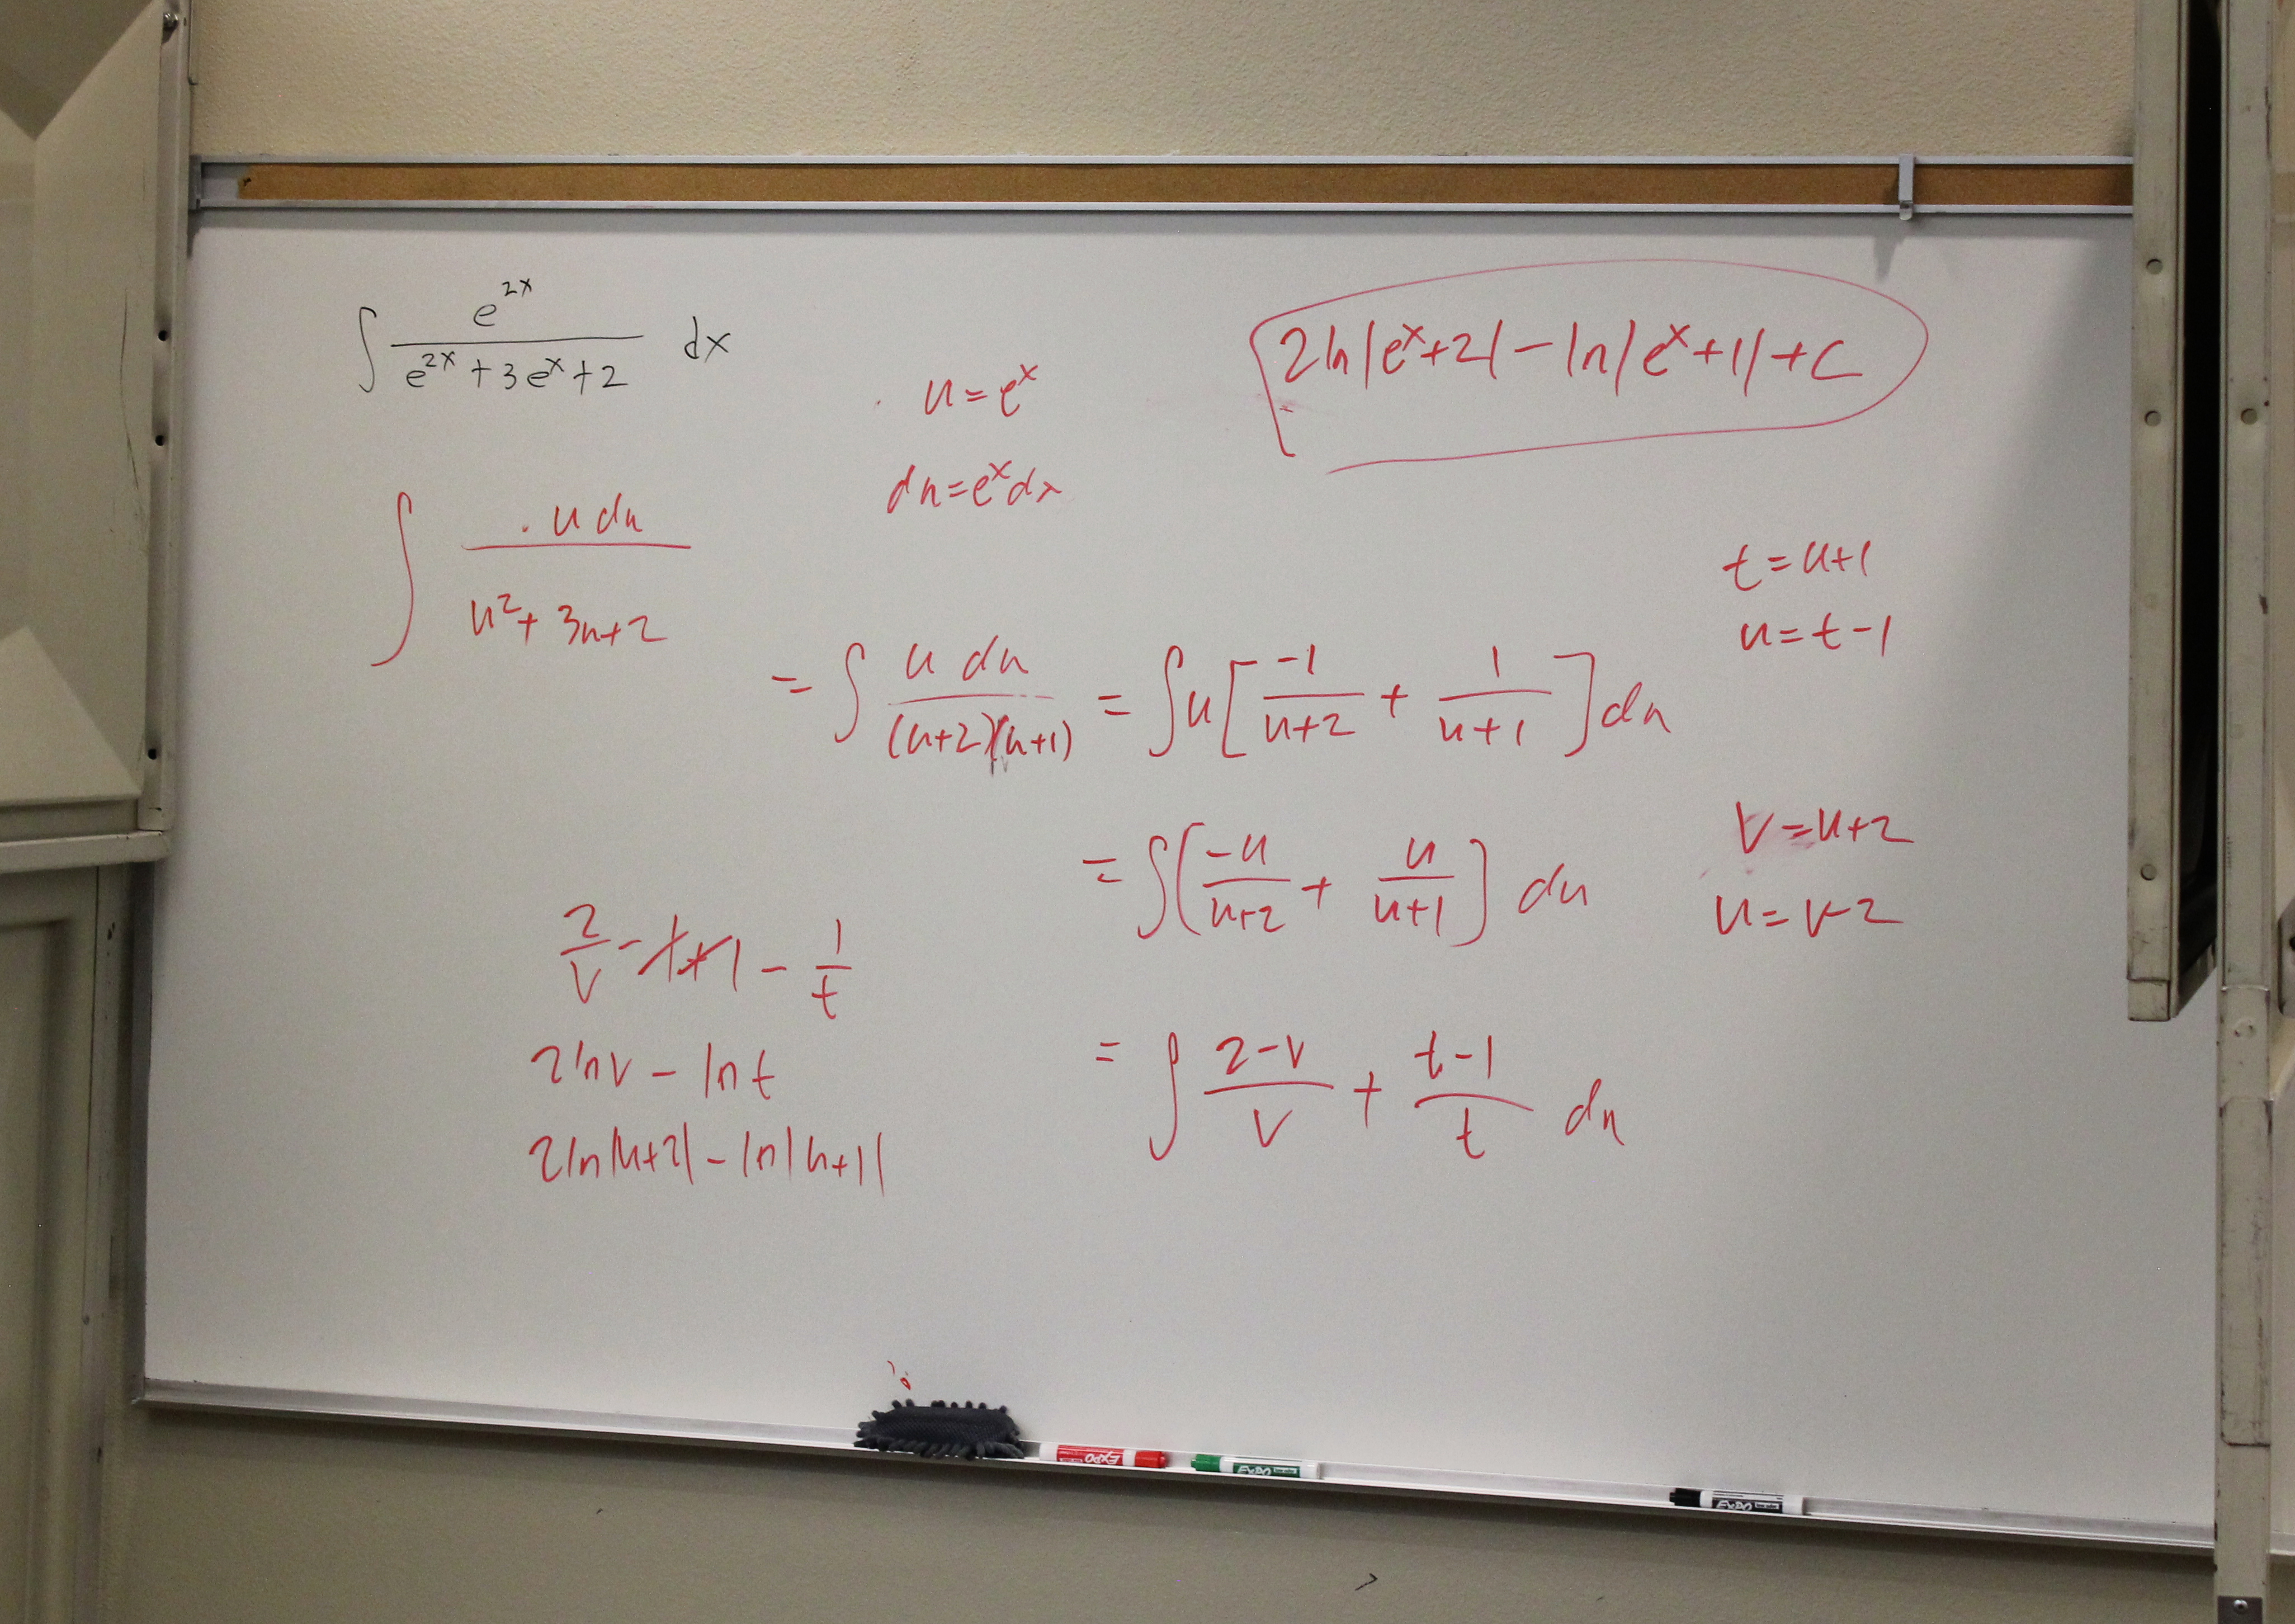 ∫ e^{2x} / (e^{2x} + 3e^x + 2) dx
u = e^x
du = e^x dx
2ln|e^x+2| - ln|e^x+1| + C
∫ u du / (u² + 3u + 2)
t = u+1
u = t-1
= ∫ u du / ((u+2)(u+1)) = ∫ u [ -1/(u+2) + 1/(u+1) ] du
V = u+2
u = v-2
= ∫ ( -u/(u+2) + u/(u+1) ] du
= ∫ (2-v)/v + (t-1)/t du
2/v - 1 + 1 - 1/t
2lnv - lnt
2ln|u+2| - ln|u+1|
EXPO
EXPO
EXPO